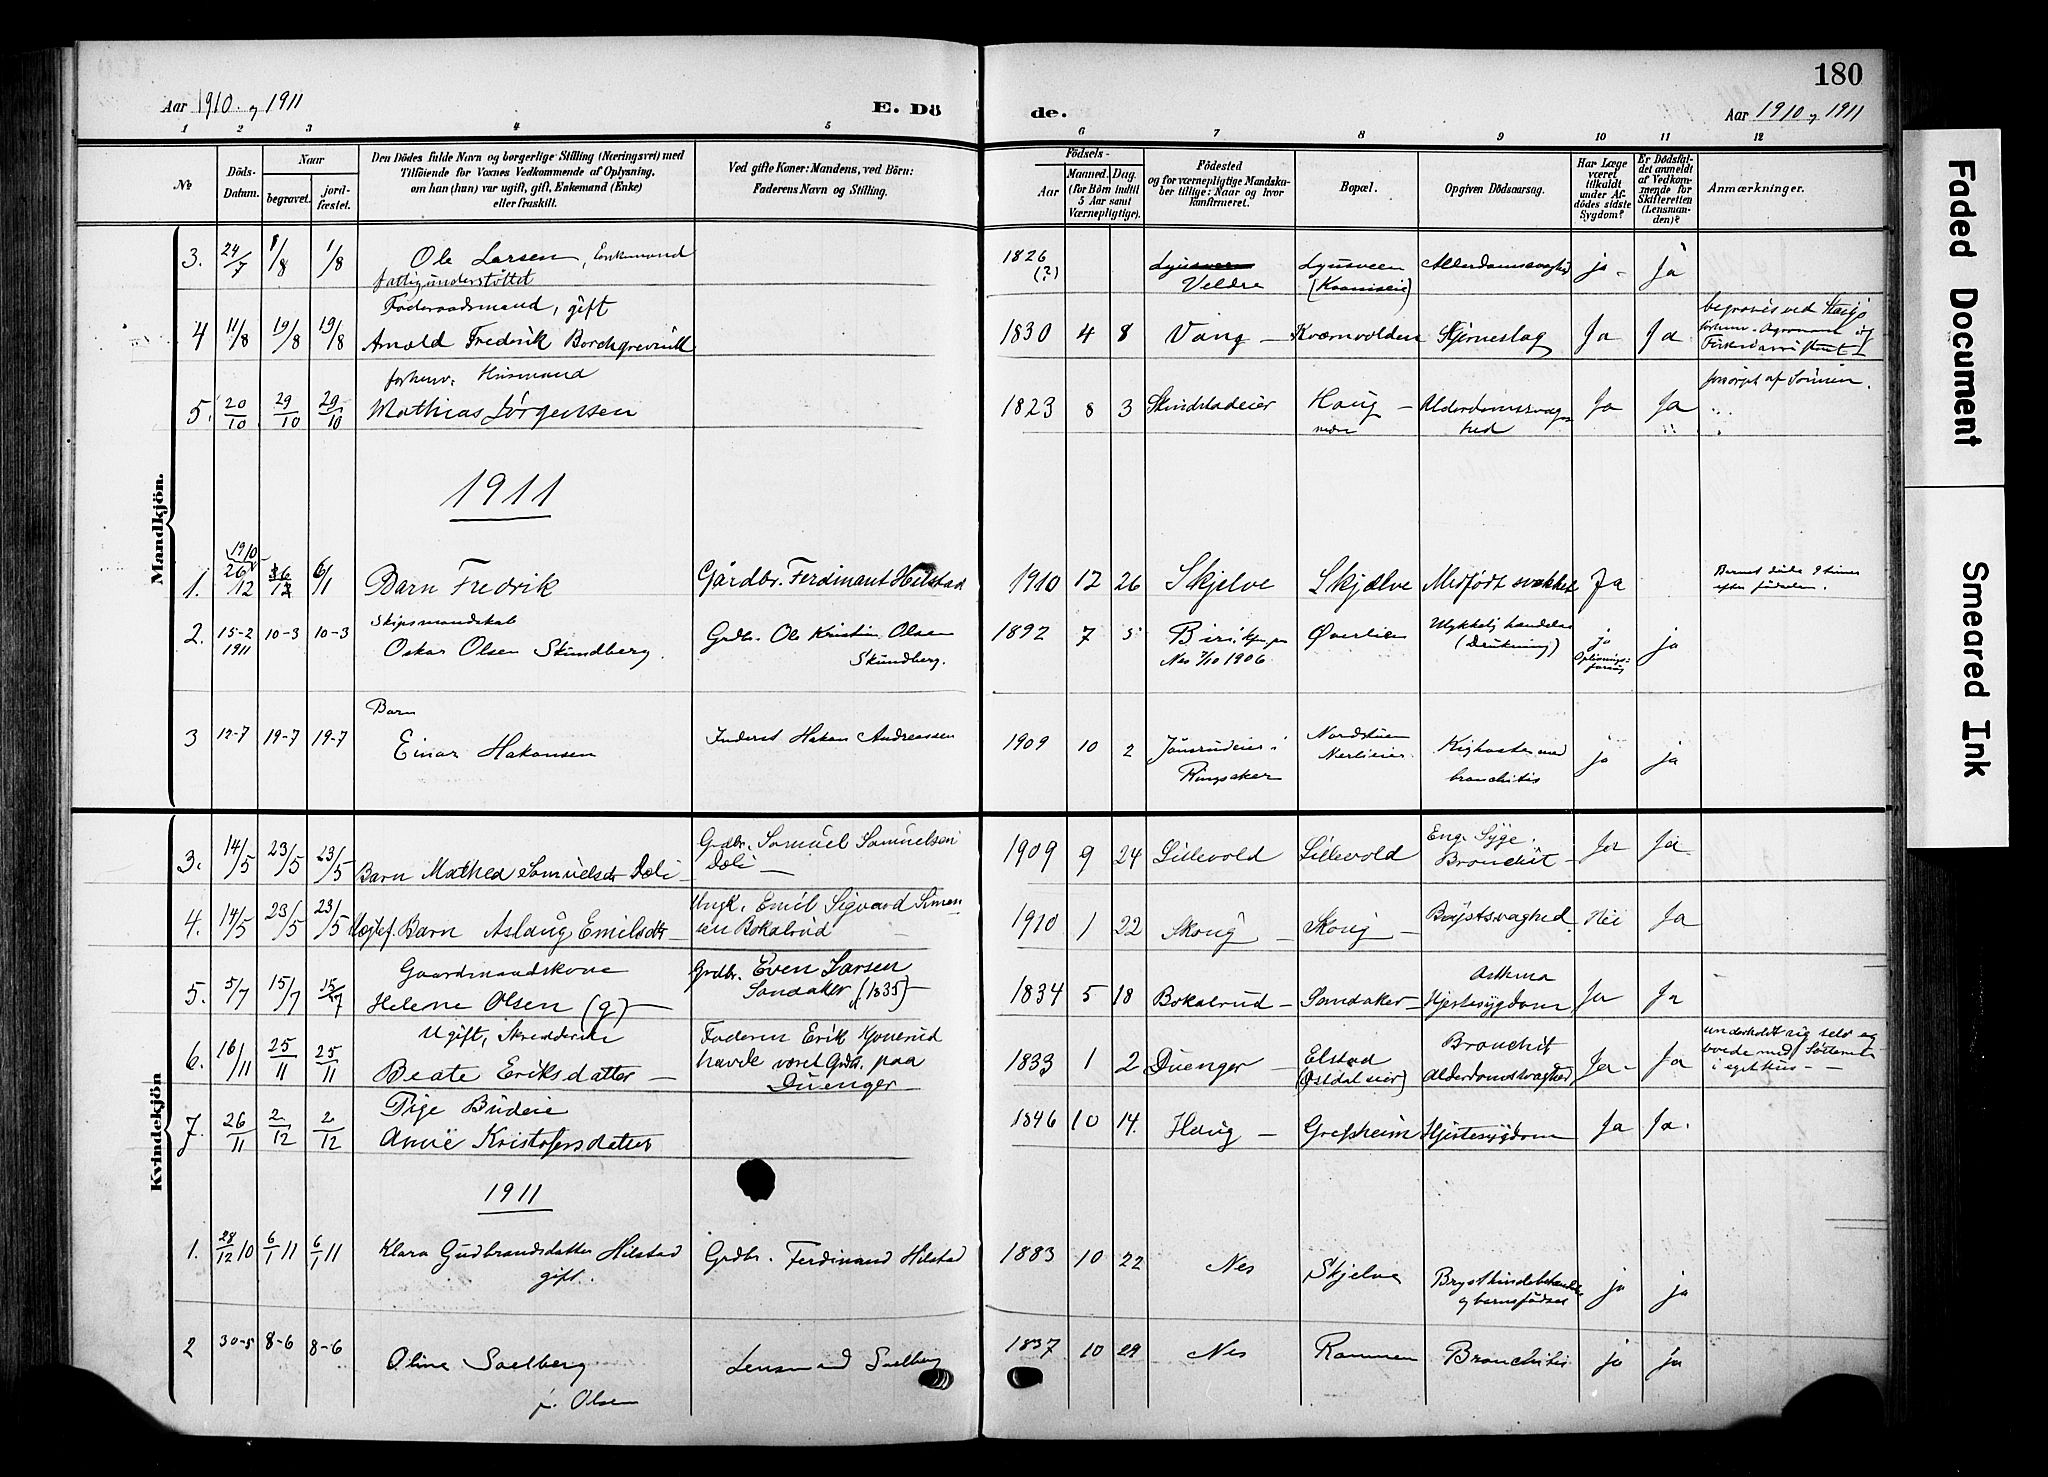 180
Aar 1910 og 1911
E. Dö de.
Aar 1910 og 1911
1 2 3 4 5 6 7 8 9 10 11 12
No
Döds-Datum.
Naar
begravet.
jord-fæstet.
Den Dödes fulde Navn og borgerlige Stilling (Næringsvei) med
Tilföiende for Voxnes Vedkommende af Oplysning,
om han (hun) var ugift, gift, Enkemand (Enke)
eller fraskilt.
Ved gifte Koner: Mandens, ved Börn:
Faderens Navn og Stilling.
Födsels-
Aar
Maaned. Dag.
(for Börn indtil
5 Aar samt
Værnepligtige).
Födested
og for værnepligtige Mandska-
ber tillige: Naar og hvor
konfirmeret.
Bopæl.
Opgiven Dödsaarsag.
Har Læge
været
tilkaldt
under Af-
dödes sidste
Sygdom?
Er Dödsfal-
det anmeldt
af Vedkom-
mende for
Skifteretten
(Lensman-
den)?
Anmærkninger.
Mandkjön.
3. 24/7 1/8 1/8 Ole Larsen, Enkemand
fattigunderstöttet
1826 (?) Veldre Lyusveen Alderdomssvaghed ja ja
Föderaadsmand, gift
4 11/8 19/8 19/8 Arnold Fredrik Borchgrevink
1830 4 8 Vang Kværnvolden Hjerneslag Ja Ja
begraves ved
forhenv. Agronom og
forhenv. Husmand
5. 20/10 29/10 29/10 Mathias Jörgensen
1823 8 3 Skindstadeier Haug nedre Alderdomssvaghed Ja Ja
forsörget af Sönnen.
1911
1. 1910 26/12 6/1 Barn Fredrik Gårdbr. Ferdinant Hilstad
1910 12 26 Skjelve Skjelve Medfödt svakhet Ja
Barnet döde 9 timer
efter födselen.
Skipsmandskab
2. 15-2 1911 10-3 10-3 Oskar Olsen Skundberg. Grdbr. Ole Kristian Olsen
Skundberg.
1892 7 5 Biri. Øverlien Ulykkelig handelse
Nes 7/10 1906 (Drukning) ja
Oplivnings-
forsøg ja
Barn
3 12-7 19-7 19-7 Einar Hakonsen Inderst Hakon Andreassen
1909 10 2 Jønsrudeier i
Ringsaker
Nordstuen
Nerlieeier.
Kighoste med
bronchitis ja ja
Kvindekjön
3. 14/5 23/5 23/5 Barn Mathea Samuelsdr Dæli Grdbr. Samuel Samuelsen
Dæli
1909 9 24 Lillevold Lillevold Eng. Syge.
Bronchit Ja Ja
4. 14/5 23/5 23/5 Uægtef. Barn Aslaug Emilsdtr Ungk. Emil Sigvard Simen-
sen Bokalrud
1910 1 22 Skoug Skoug Brystsvaghed. Nei Ja
Gaardmandskone
5. 5/7 15/7 15/7 Helene Olsen (g) Grdbr. Even Larsen
Sandaker (1835)
1834 5 18 Bokalrud Sandaker Asthma
Hjertesygdom Ja Ja
Ugift, Skrædderske
6. 16/11 25/11 25/11 Beate Eriksdatter Faderen Erik Kjonerud
havde været Grdbr. paa
Duenger
1833 1 2 Duenger Elstad
(Østdaleier) Bronchit
Alderdomssvaghed Ja Ja
underholdt sig selv og
boede med Södsken
i eget Hus
Pige Budeie
7. 26/11 2/12 2/12 Anne Kristofersdatter
1846 10 14. Haug Grefsheim Hjertesygdom Ja Ja.
1911
1. 28/12 10 6/1 11 6/1 11 Klara Gudbrandsdatter Hilstad
gift. Grdbr. Ferdinand Hilstad
1883 10 22 Nes Skjelve Brysthindebetændelse
og barnsfödsel ja ja
2 30-5 8-6 8-6 Oline Saelberg
f. Olsen Lensmand Saelberg
1837 10 29 Nes Rammen Bronchitis ja ja
Faded Document
Smeared Ink